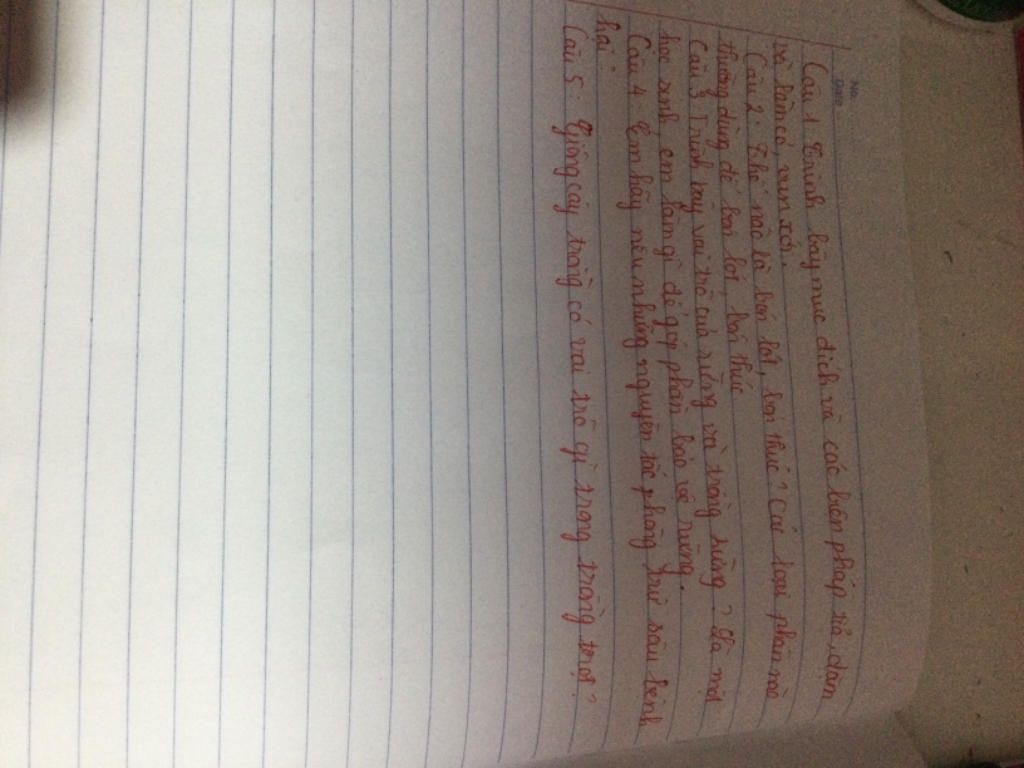 No.
Date
Câu 1 Trình bày mục đích và các biện pháp tỉa, dặm
và làm cỏ, vun xới.
Câu 2: Thế nào là bón lót, bón thúc? Các loại phân nào
thường dùng để bón lót, bón thúc
Câu 3 Trình bày vai trò của rừng và trồng rừng? Là một
học sinh, em làm gì để góp phần bảo vệ rừng.
Câu 4: Em hãy nêu những nguyên tắc phòng trừ sâu bệnh
hại.
Câu 5: Giống cây trồng có vai trò gì trong trồng trọt?